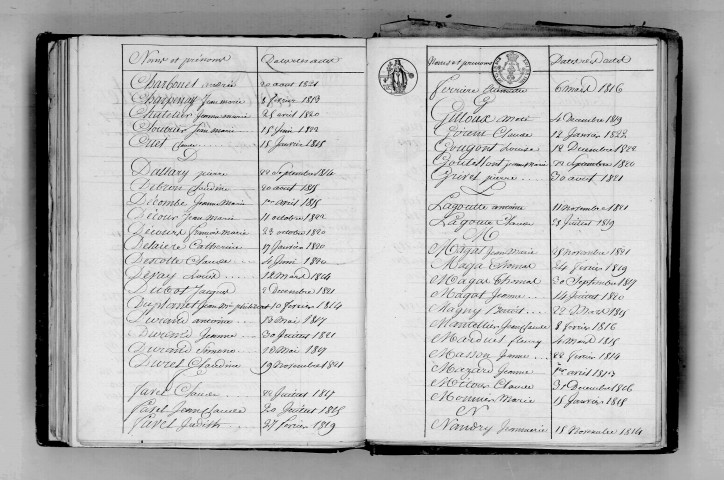 Noms et prénoms Dates des actes
Charbonet andré 20 aout 1821
Chapponay Jean marie 8 février 1813
Chatelier Jeanne marie 25 avril 1820
Chouvier Jean marie 15 Juin 1822
Criet Claude 15 Janvier 1815
D
Dassary pierre 22 Septembre 1814
Debrun Claudine 20 aout 1815
Decombe Jeanne Marie 1er avril 1815
Decour Jean Marie 11 octobre 1822
Decours Benoit Marie 23 octobre 1820
Catherine 17 Janvier 1820
Descotte Claude 4 Juin 1820
Devay Louis 12 mars 1814
Dubost Jacques 2 Decembre 1821
Duplanet Jean Mie philibert 10 février 1814
Durand antoine 13 Mai 1817
Durand Jeanne 30 Juillet 1821
Durand Simeon 10 Mai 1819
Duret Claudine 19 Novembre 1821
Favel Claude 22 Juillet 1817
Favel Jean Claude 20 Juillet 1815
Favel Judith 27 février 1819
Noms et prénoms Dates des actes
Ferriere 6 mars 1816
G
4 Decembre 1819
Claude 12 Janvier 1822
Gougont Louise 12 Decembre 1822
Jeanne Marie 22 Septembre 1820
Grivel pierre 30 aout 1821
L
Lagoutte antoine 11 novembre 1821
Lagoutte Claude 28 Juillet 1819
M
Magat Jean Marie 18 novembre 1821
Magat Thomas 24 février 1819
Magat Thomas 30 Septembre 1817
Magat Jeanne 14 Juillet 1820
Magny Benoit 22 Mars 1815
Jean Claude 8 février 1816
Marduel fleury 4 mars 1815
Masson Jeanne 22 février 1814
Mazard Jeanne 1er avril 1813
Claude 31 Decembre 1816
Monnier Marie 15 Janvier 1815
N
Nandry Jean marie 15 Novembre 1814